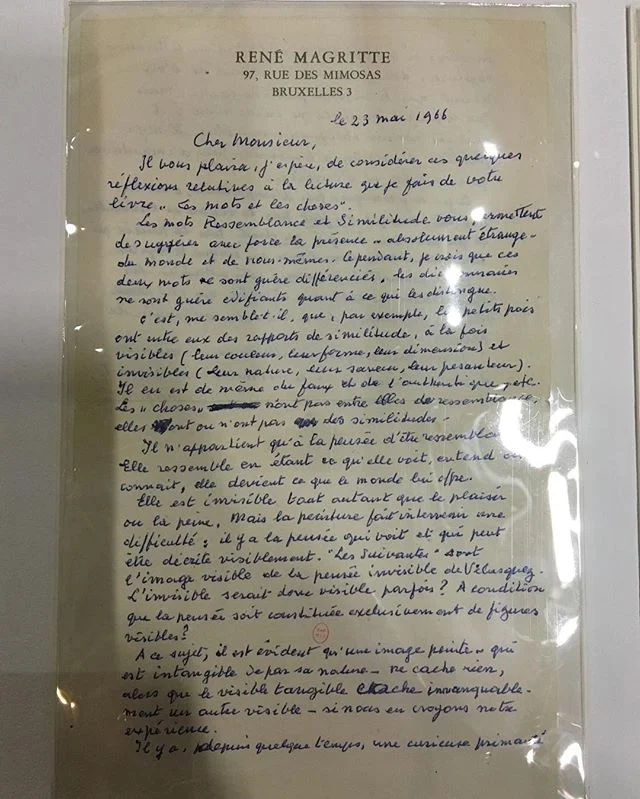 RENÉ MAGRITTE
97, RUE DES MIMOSAS
BRUXELLES 3
le 23 mai 1966
Cher Monsieur,
Il vous plaira, j'espère, de considérer ces quelques
réflexions relatives à la lecture que je fais de votre
livre "Les mots et les choses".
Les mots Ressemblance et Similitude vous permettent
de suggérer avec force la présence "absolument étrange"
du monde et de nous-mêmes. Cependant, je crois que ces
deux mots ne sont guère différenciés, les dictionnaires
ne sont guère édifiants quant à ce qui les distingue.
C'est, me semble-t-il, que, par exemple, les petits pois
ont entre eux des rapports de similitude, à la fois
visibles (leur couleur, leur forme, leur dimension) et
invisibles (leur nature, leur saveur, leur pesanteur).
Il en est de même du faux et de l'authentique, etc.
Les "choses" n'ont pas entre elles de ressemblance,
elles ont ou n'ont pas des similitudes.
Il n'appartient qu'à la pensée d'être
Elle ressemble en étant ce qu'elle voit, entend ou
connait, elle devient ce que le monde lui offre.
Elle est invisible tout autant que le plaisir
ou la peine. Mais la peinture fait intervenir une
difficulté : il y a la pensée qui voit et qui peut
être décrite visiblement. "Les Suivantes" sont
l'image visible de la pensée invisible de Vélasquez.
L'invisible serait donc visible parfois? A condition
que la pensée soit constituée exclusivement de figures
visibles?
A ce sujet, il est évident qu'une image peinte - qui
est intangible de par sa nature - ne cache rien,
alors que le visible tangible cache immanquable-
ment un autre visible - si nous en croyons notre
expérience.
Il y a, depuis quelque temps, une curieuse primauté